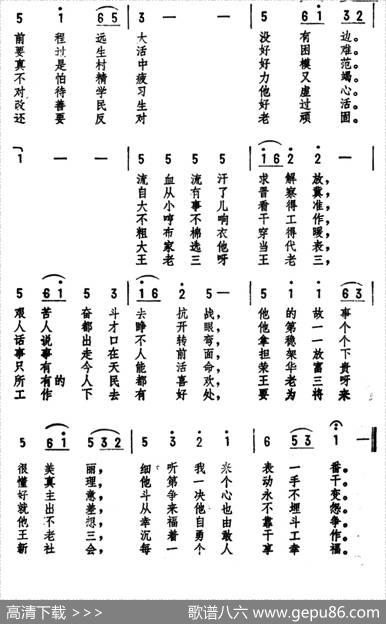 5 i 6 5 3 — — 5 6 i 3 2
前程远大没有边。
要过生活好困难。
真是村中好模范。
不怕精疲力又竭。
对待学习他虚心。
改善民生好过活。
还要反对老顽固。
1 — — 5 5 5 5 i 6 2 2
流血流汗求解放,
自从有了晋察冀,
大小事儿看得准,
不哼不响干工作,
粗布棉衣穿得暖,
大家选他当代表,
王老三呀王老三,
5 6 i 5 3 i 6 2 5 — 5 i i 6 3
艰苦奋斗去抗战,他的故事
人人都才睁开眼,他第一个
话说出口不转弯,拿稳一个
事事走在人前面,担架放下
只有今天能活命,荣华富贵
所有的人民都喜欢,王老三呀
工作下去有好处,要为将来
5 6 i 5 3 2 5 3 2 i 6 5 3 i —
很美丽,细听我来表一番。
懂真理,他第一个动手干。
好主意,斗争决心永不变。
就出差,从来他也不埋怨。
他不想,幸福自由靠斗争。
王老三,沉着勇敢干工作。
新社会,每一个人享幸福。
高清下载 >>> 歌谱八六 www.gepu86.com